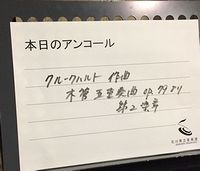 本日のアンコール
クルークハルト 作曲
木管五重奏曲 op.79 より
第2楽章
石川県立音楽堂